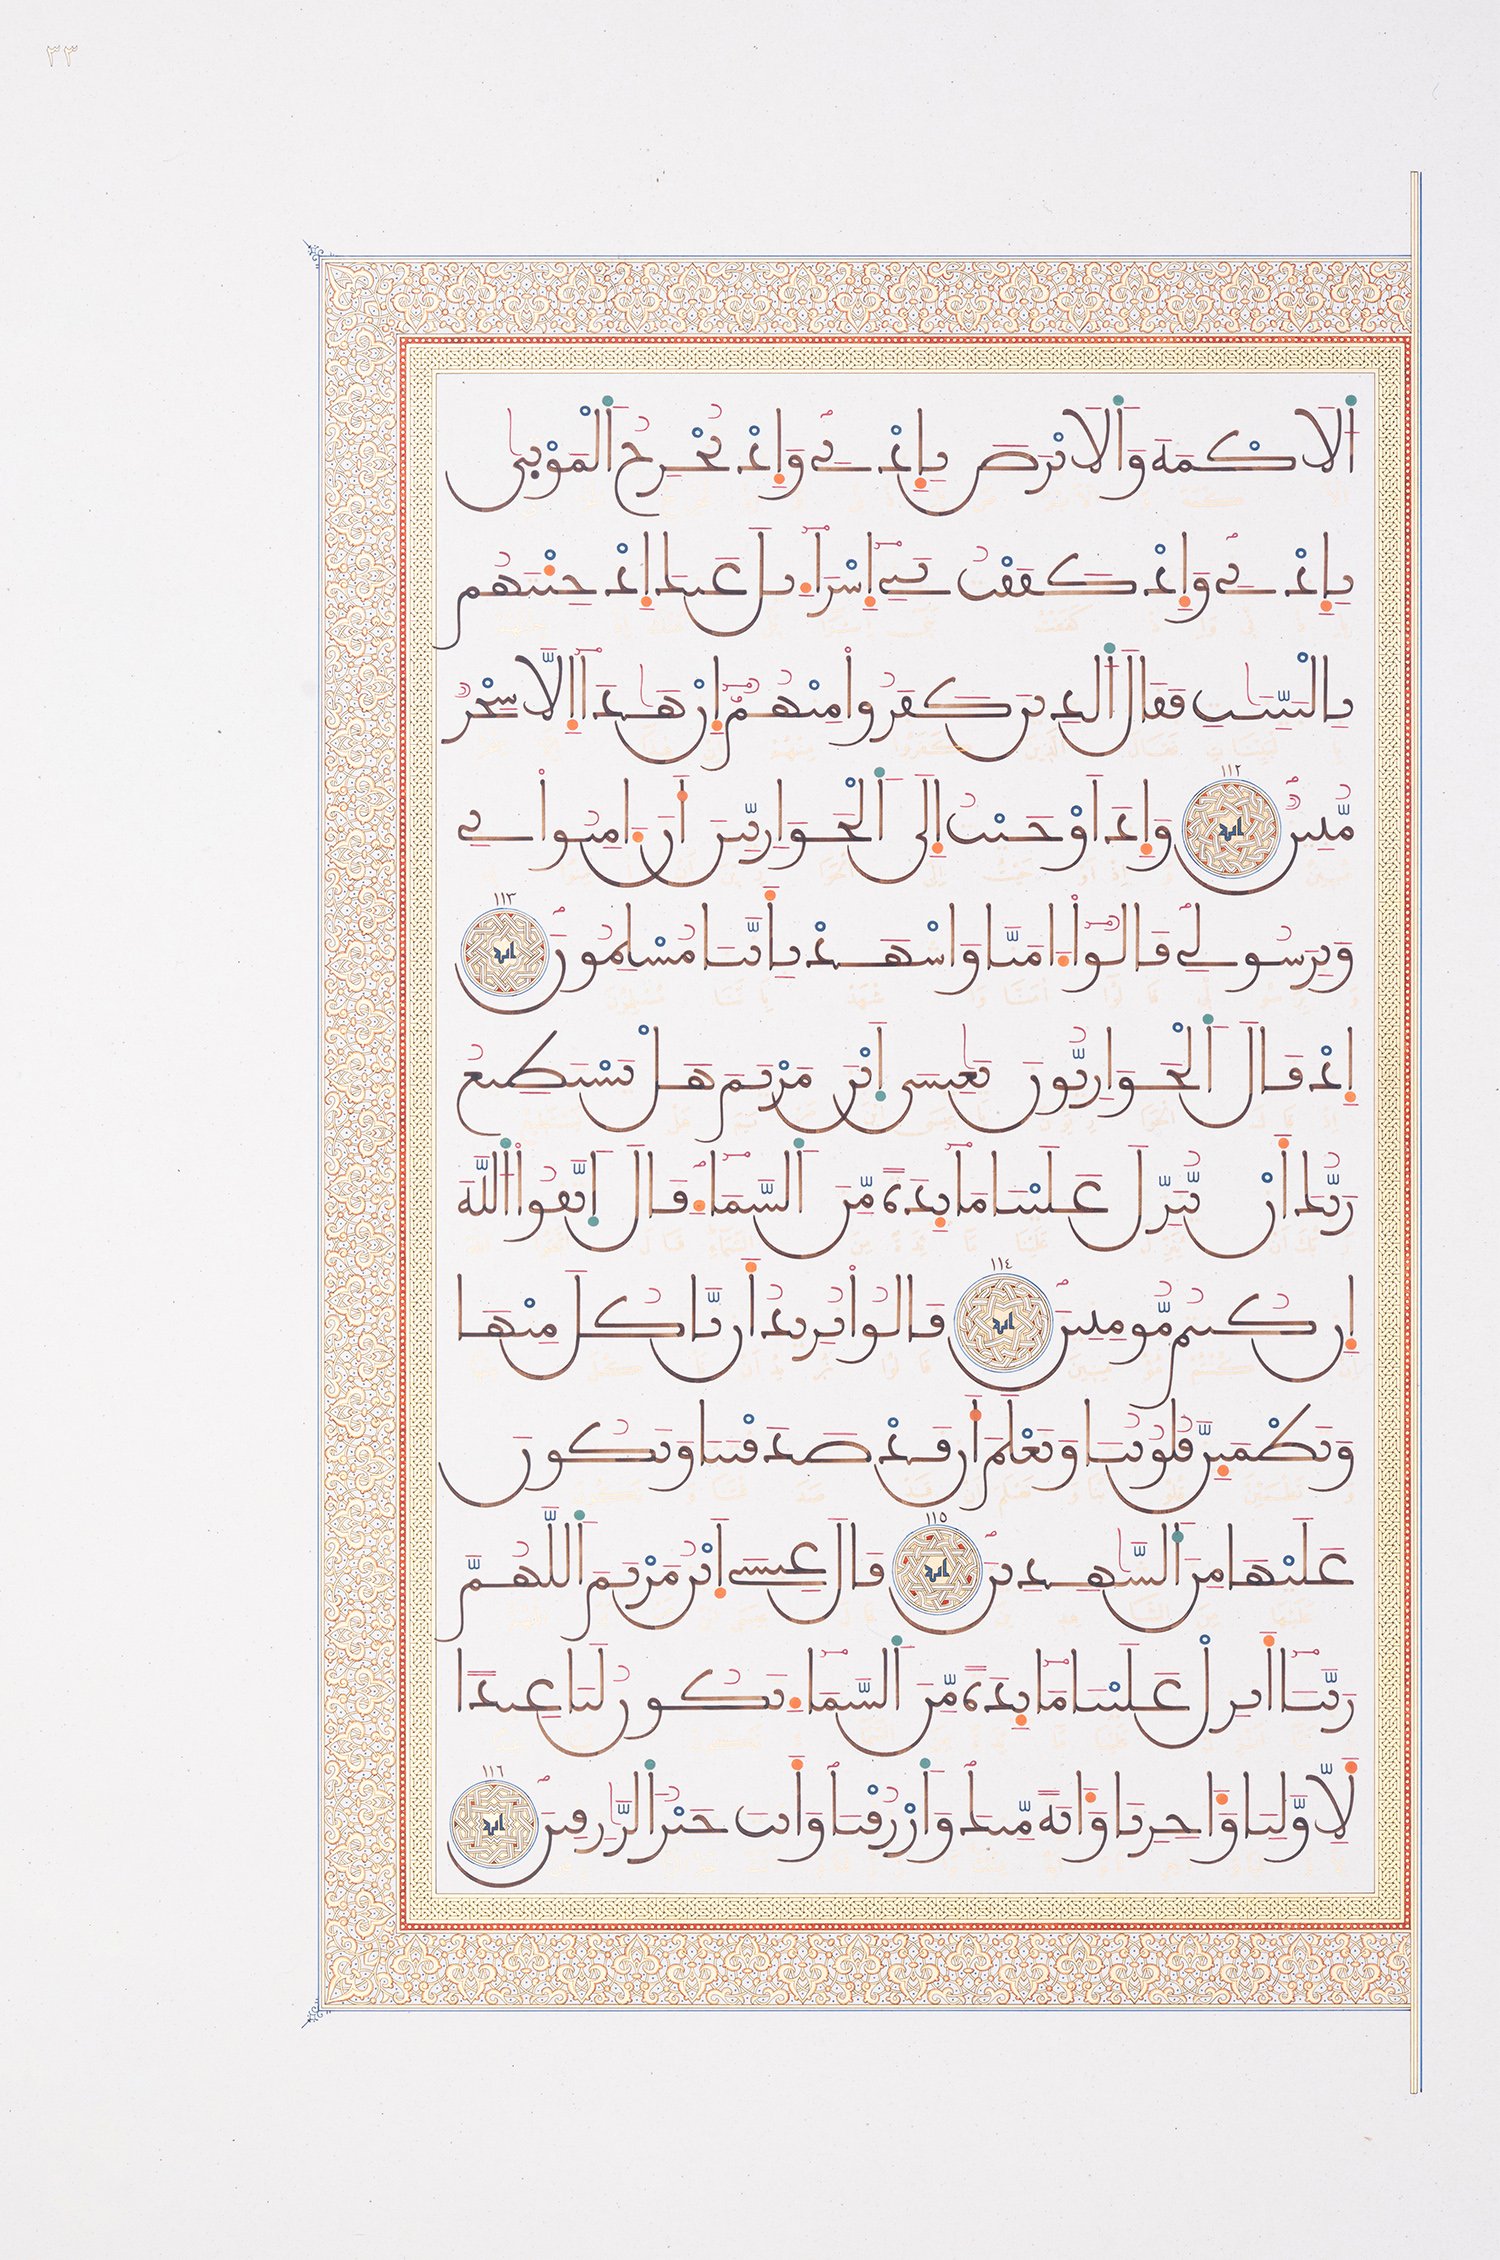 ٣٣
اَ۬لَاكْمَهَ وَالَابْرَصَ بِإِذْنِے وَإِذْ تُخْرِجُ اُ۬لْمَوْتٜىٰ
بِإِذْنِے وَإِذْ كَفَفْتُ بَنِےٓ إِسْرَآءِيلَ عَنكَ إِذْ جِئْتَهُم
بِالْبَيِّنَٰتِ فَقَالَ اَ۬لذِينَ كَفَرُواْ مِنْهُمُۥٓ إِنْ هَٰذَآ إِلَّا سِحْرٌ
مُّبِينٌۖ ١١٢ ايه وَإِذَ اَوْحَيْتُ إِلَى اَ۬لْحَوَارِيِّـۧنَ أَنَ اٰمِنُواْ بِے
وَبِرَسُولِے قَالُوٓاْ ءَامَنَّا وَاشْهَدْ بِأَنَّنَا مُسْلِمُونَۖ ١١٣ ايه
إِذْ قَالَ اَ۬لْحَوَارِيُّونَ يَٰعِيسَى اَ۪بْنَ مَرْيَمَ هَلْ يَسْتَطِيعُ
رَبُّكَ أَنْ يُّنَزِّلَ عَلَيْنَا مَآئِدَةً مِّنَ اَ۬لسَّمَآءِۖ قَالَ اَ۪تَّقُواْ اُ۬للَّهَ
إِن كُنتُم مُّومِنِينَۖ ١١٤ ايه قَالُواْ نُرِيدُ أَن نَّاكُلَ مِنْهَا
وَتَطْمَئِنَّ قُلُوبُنَا وَنَعْلَمَ أَن قَدْ صَدَقْتَنَا وَنَكُونَ
عَلَيْهَا مِنَ اَ۬لشَّٰهِدِينَۖ ١١٥ ايه قَالَ عِيسَى اَ۪بْنُ مَرْيَمَ اَ۬للَّهُمَّ
رَبَّنَآ أَنزِلْ عَلَيْنَا مَآئِدَةً مِّنَ اَ۬لسَّمَآءِ تَكُونُ لَنَا عِيداً
لِّأَوَّلِنَا وَءَاخِرِنَا وَءَايَةً مِّنكَۖ وَارْزُقْنَا وَأَنتَ خَيْرُ اُ۬لرَّٰزِقِينَۖ ١١٦ ايه